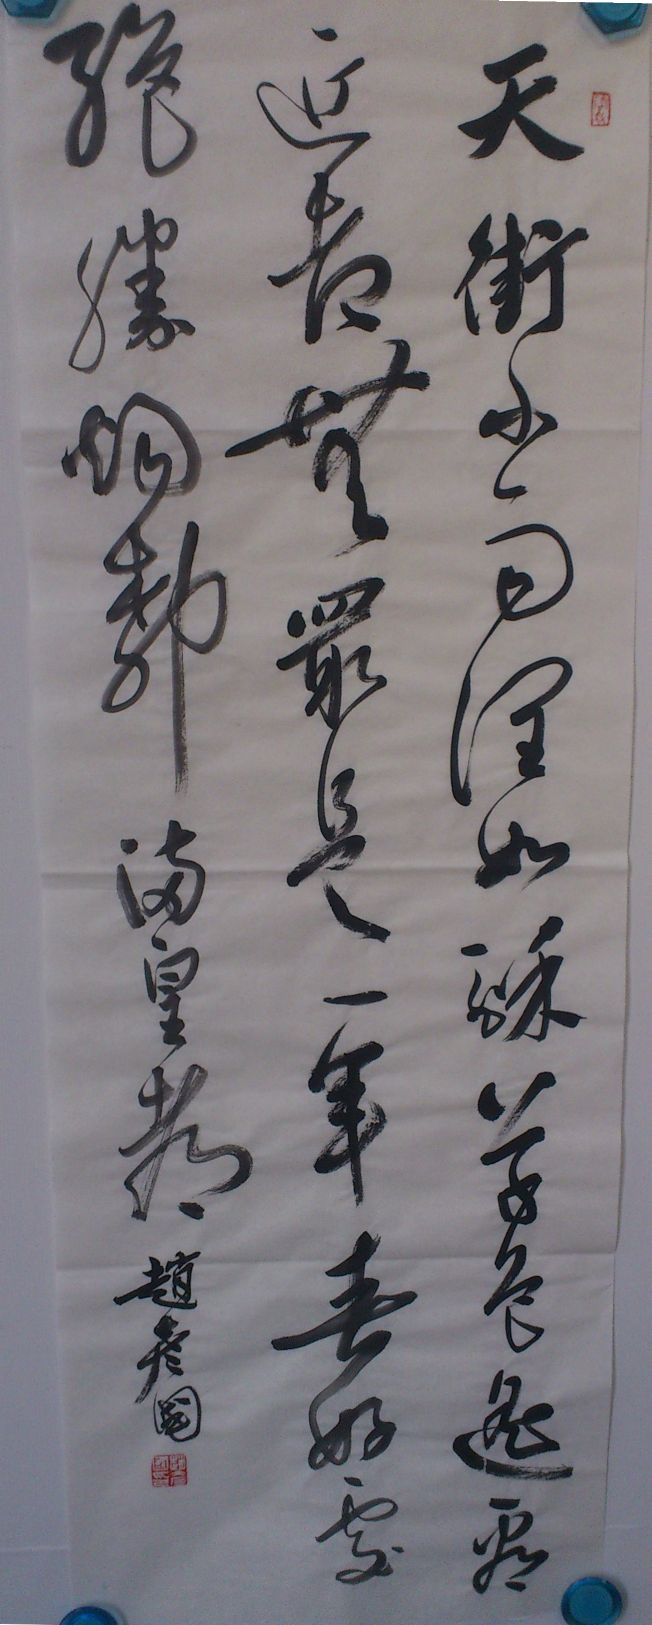 天街小雨潤如酥草色遙看
近却無最是一年春好處
絕勝烟柳滿皇都 趙彥國